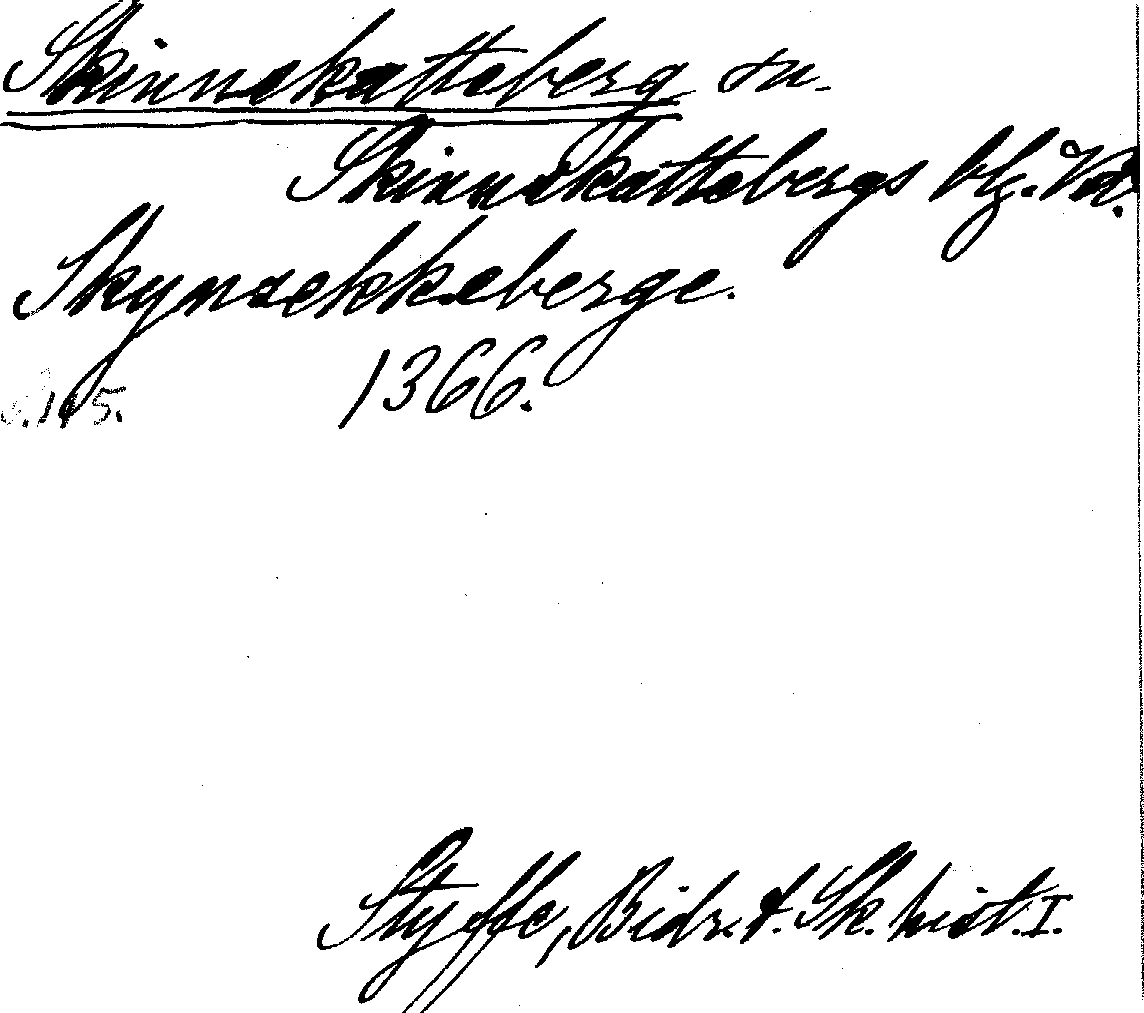 Skinnekatteberg sn.
Skinnskattebergs blg. Vd.
Skynsekkeberge.
1366.
s. 145.
Styffe, Bidr. t. Sk. hist. I.